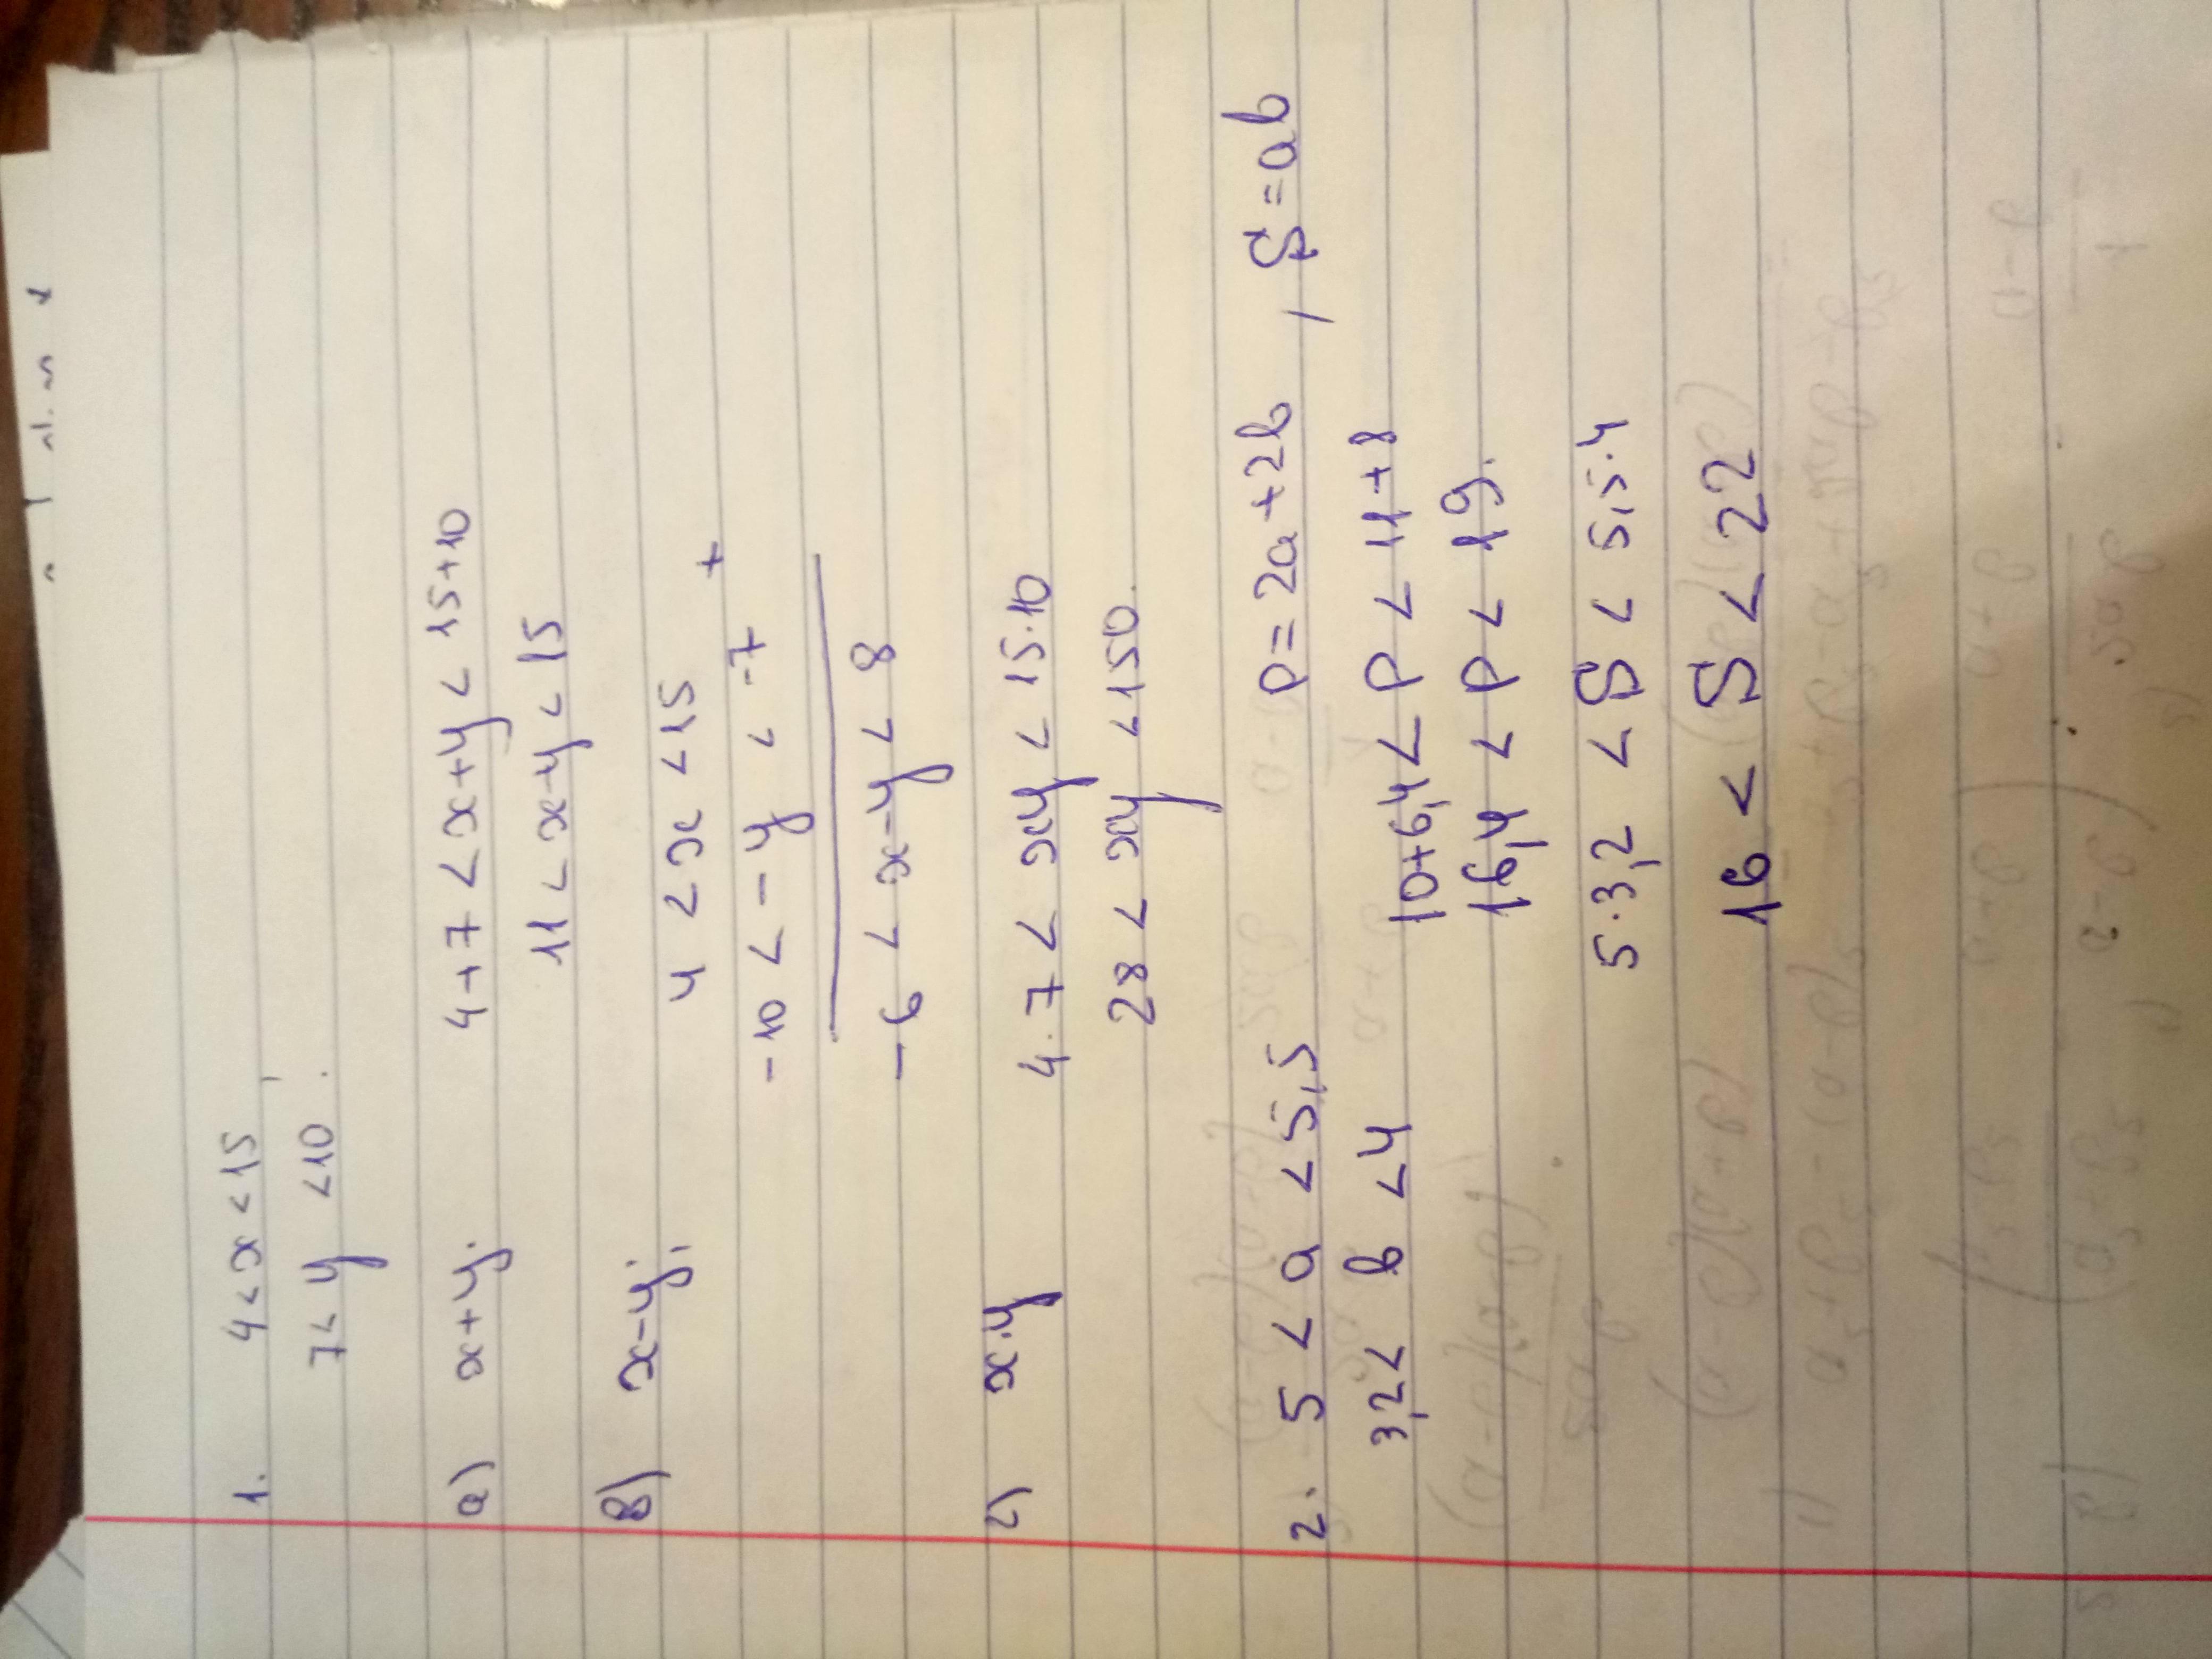 1. 4<x<15
7<y<10.
a) x+y. 4+7<x+y<15+10
11<x-y<15
в) x-y; 4<x<15
+
-10<-y<-7
-6<x-y<8
г) x·y 4·7<xy<15·10
28<xy<150.
2. 5<a<5,5 P=2a+2b, S=ab
3,2<b<4 10+6,4<P<11+8
16,4<P<19.
5·3,2<S<5,5·4
16<S<22